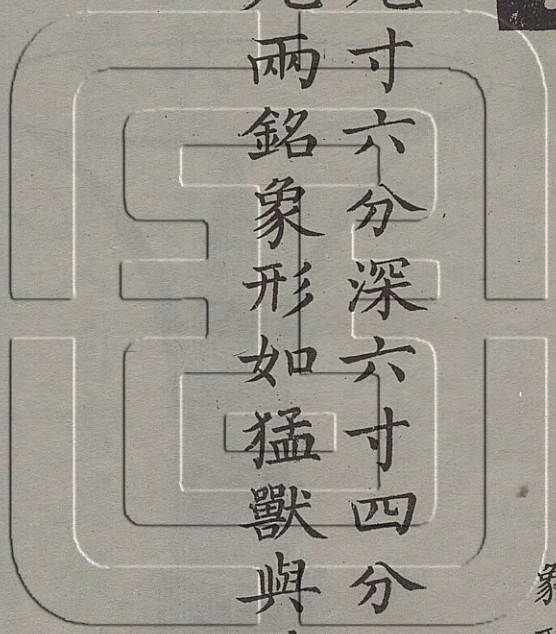 寸六分深六寸四分
兩銘象形如猛獸與